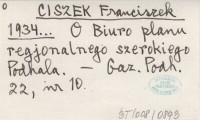 CISZEK Franciszek
1934... O Biuro planu
regjonalnego szerokiego
Podhala. — Gaz. Podh.
22, nr 10.
ST/008/0893